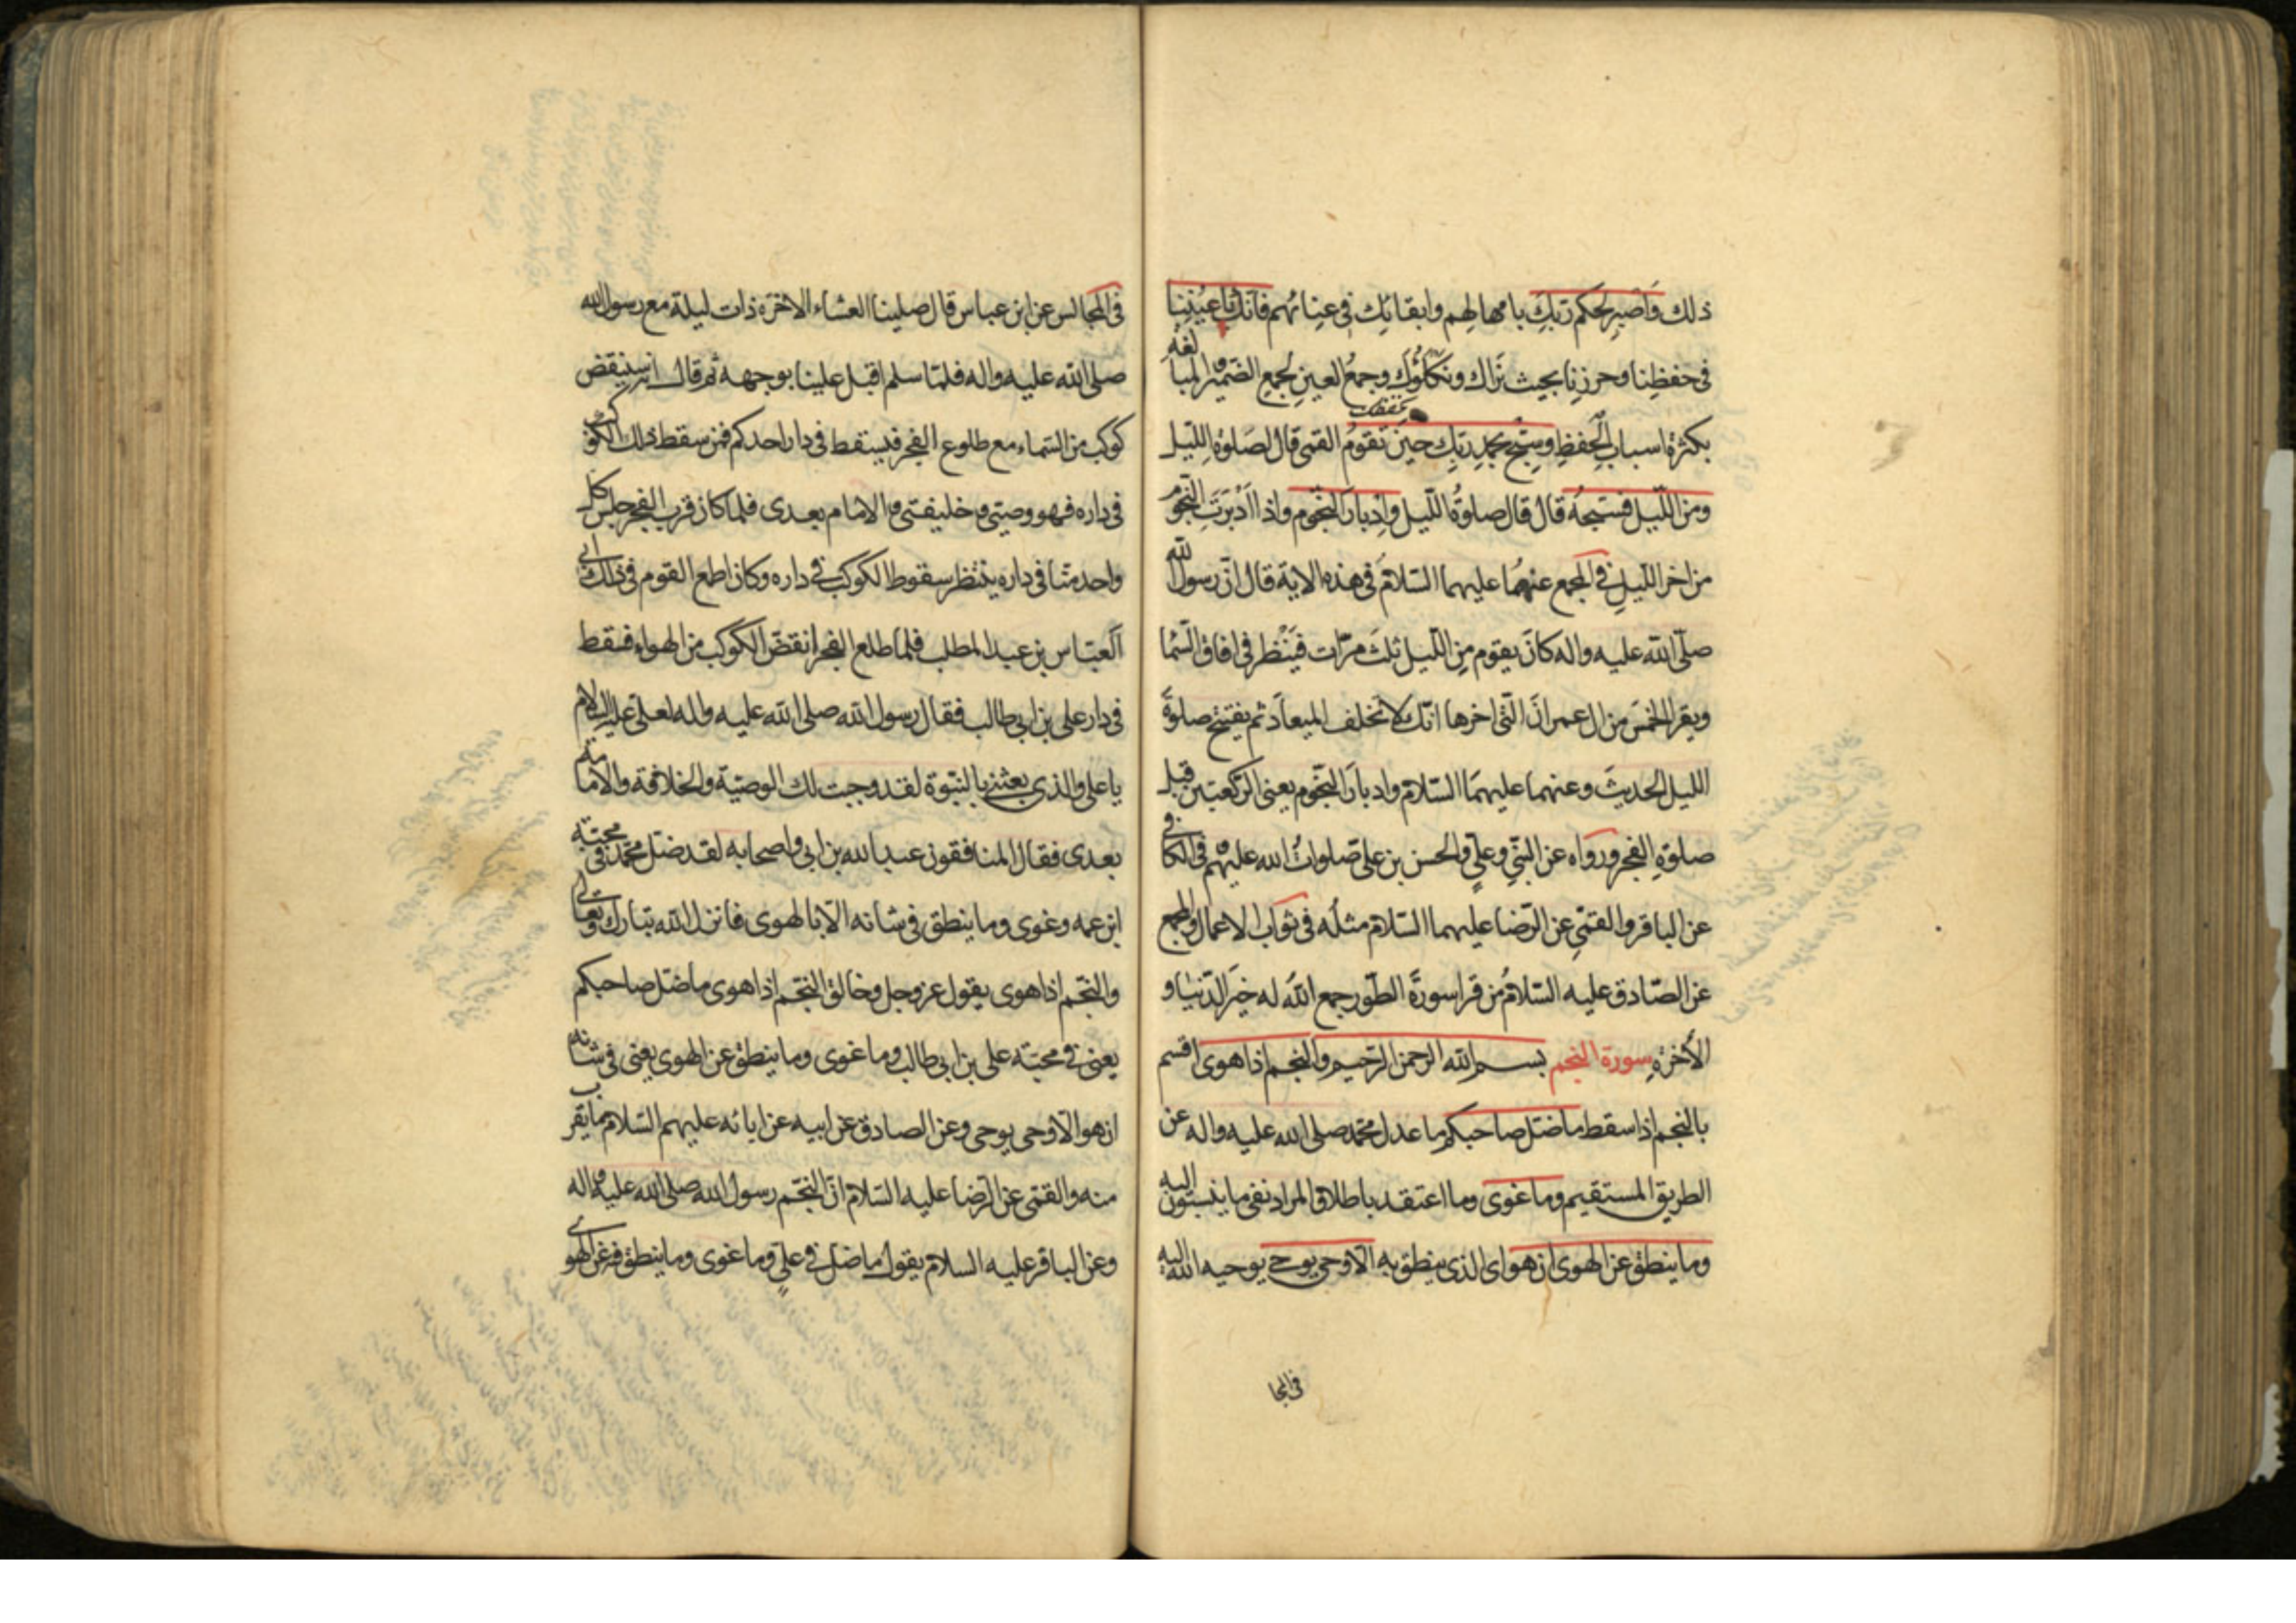 ذلك وَاصْبِر لِحكم رَبّكَ بامهالهم وابقائك فى عنائهم فانّك باعيننا
فى حفظِنا وحرزنا بحيث نَراك ونكلؤك وجمعُ العين لجمع الضّمير والمبالغة
بكثرة اسباب الحفظِ وسبّح بحمد ربّك حين تقومُ القمى قال لصلوة الليل
ومن اللّيل فسبّحهُ قال قال صلوةُ اللّيل وادبار النّجوم واذا ادْبَرَت النّجوم
من اخر اللّيل فى المجمع عنهما عليهما السّلام فى هذه الاية قال انّ رسول الله
صلّى الله عليه واله كانَ يقوم مِن اللّيل ثلث مرّات فينظر فى افاق السّما
ويقرا الخمسَ من ال عمران الّتى اخرها انّك لا تخلف الميعاد ثم يفتتح صلوة
الليل الحديثَ وعنهما عليهمَا السّلام وادبارَ النّجوم يعنى الرّكعتين قبل
صلوةِ الفجر ورواه عن النّبىّ وعلىّ والحسن بن على صلواتُ الله عليهم وفى الكافى
عن الباقر والقمّىِ عن الرّضا عليهما السّلام مثلُه فى ثواب الاعمال والمجمع
عن الصّادق عليه السّلامُ من قرا سورةَ الطّور جمع الله له خيرَ الدّنيا و
الأخرةِ سورة النجم بسم الله الرحمن الرّحيم والنجم اذا هوى اقسم
بالنجم اذا سقط ما ضلّ صاحبكم ما عدل محمّد صلى الله عليه واله عن
الطريق المستقيم وما غوى وما اعتقد باطلا والمراد نفى ما ينسبون اليه
وما ينطق عن الهوى ان هو اى الذى ينطق به الّا وحى يوحى يوحيه الله اليه
فى المجا
فى المجالس عن ابن عباس قال صلينا العشاء الاخرة ذات ليلة مع رسول الله
صلى الله عليه واله فلمّا سلم اقبل علينا بوجهه ثم قال انه سينقض
كوكب من السّماء مع طلوع الفجر فيسقط فى دار احدكم فمن سقط ذلك الكوكب
فى داره فهو وصيّى وخليفتى والامام بعدى فلما كان قرب الفجر جلس كل
واحد منّا فى داره ينتظر سقوط الكوكب فى داره وكان اطمع القوم فى ذلك ابى
العبّاس بن عبد المطلب فلما طلع الفجر انقضّ الكوكب من الهواء فسقط
فى دار على بن ابى طالب فقال رسول الله صلى الله عليه واله لعلى عليه السلام
يا على والذى بعثنى بالنبّوة لقد وجبت لك الوصيّة والخلافة والامامة
بعدى فقال المنافقون عبد الله بن ابى واصحابه لقد ضل محمّد فى محبّة
ابن عمه وغوى وما ينطق فى شانه الّا بالهوى فانزل الله تبارك وتعالى
والنجّم اذا هوى يقول عز وجل وخالق النجّم اذا هوى ما ضل صاحبكم
يعنى فى محبّة على بن ابى طالب وما غوى وما ينطق عن الهوى يعنى فى شانه
ان هو الّا وحى يوحى وعن الصادق عن ابيه عن ابائه عليهم السّلام ما يقرب
منه والقمّى عن الرّضا عليه السّلام انّ النجّم رسول الله صلى الله عليه واله
وعن الباقر عليه السلام يقول ما ضل فى علىّ وما غوى وما ينطق فيه عن الهوى